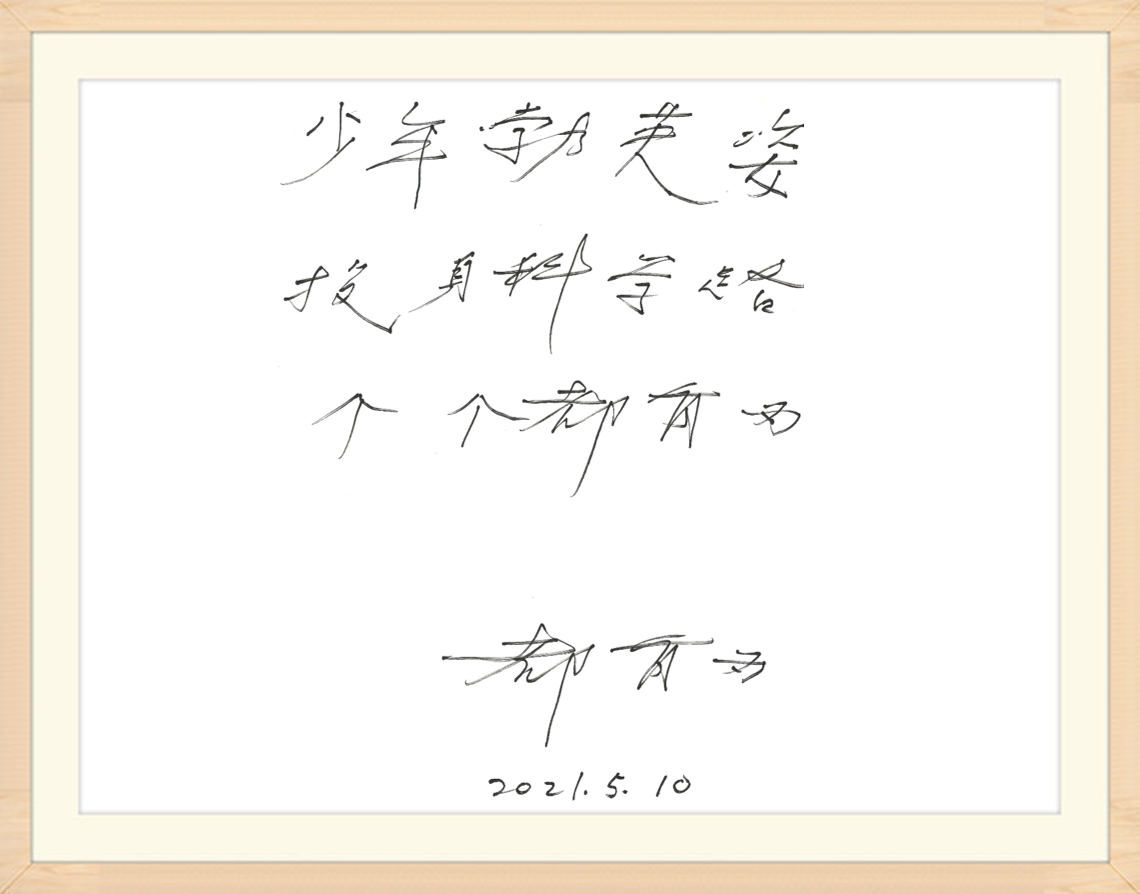 少年勃英姿
投身科学路
个个都有为
都有为
2021.5.10